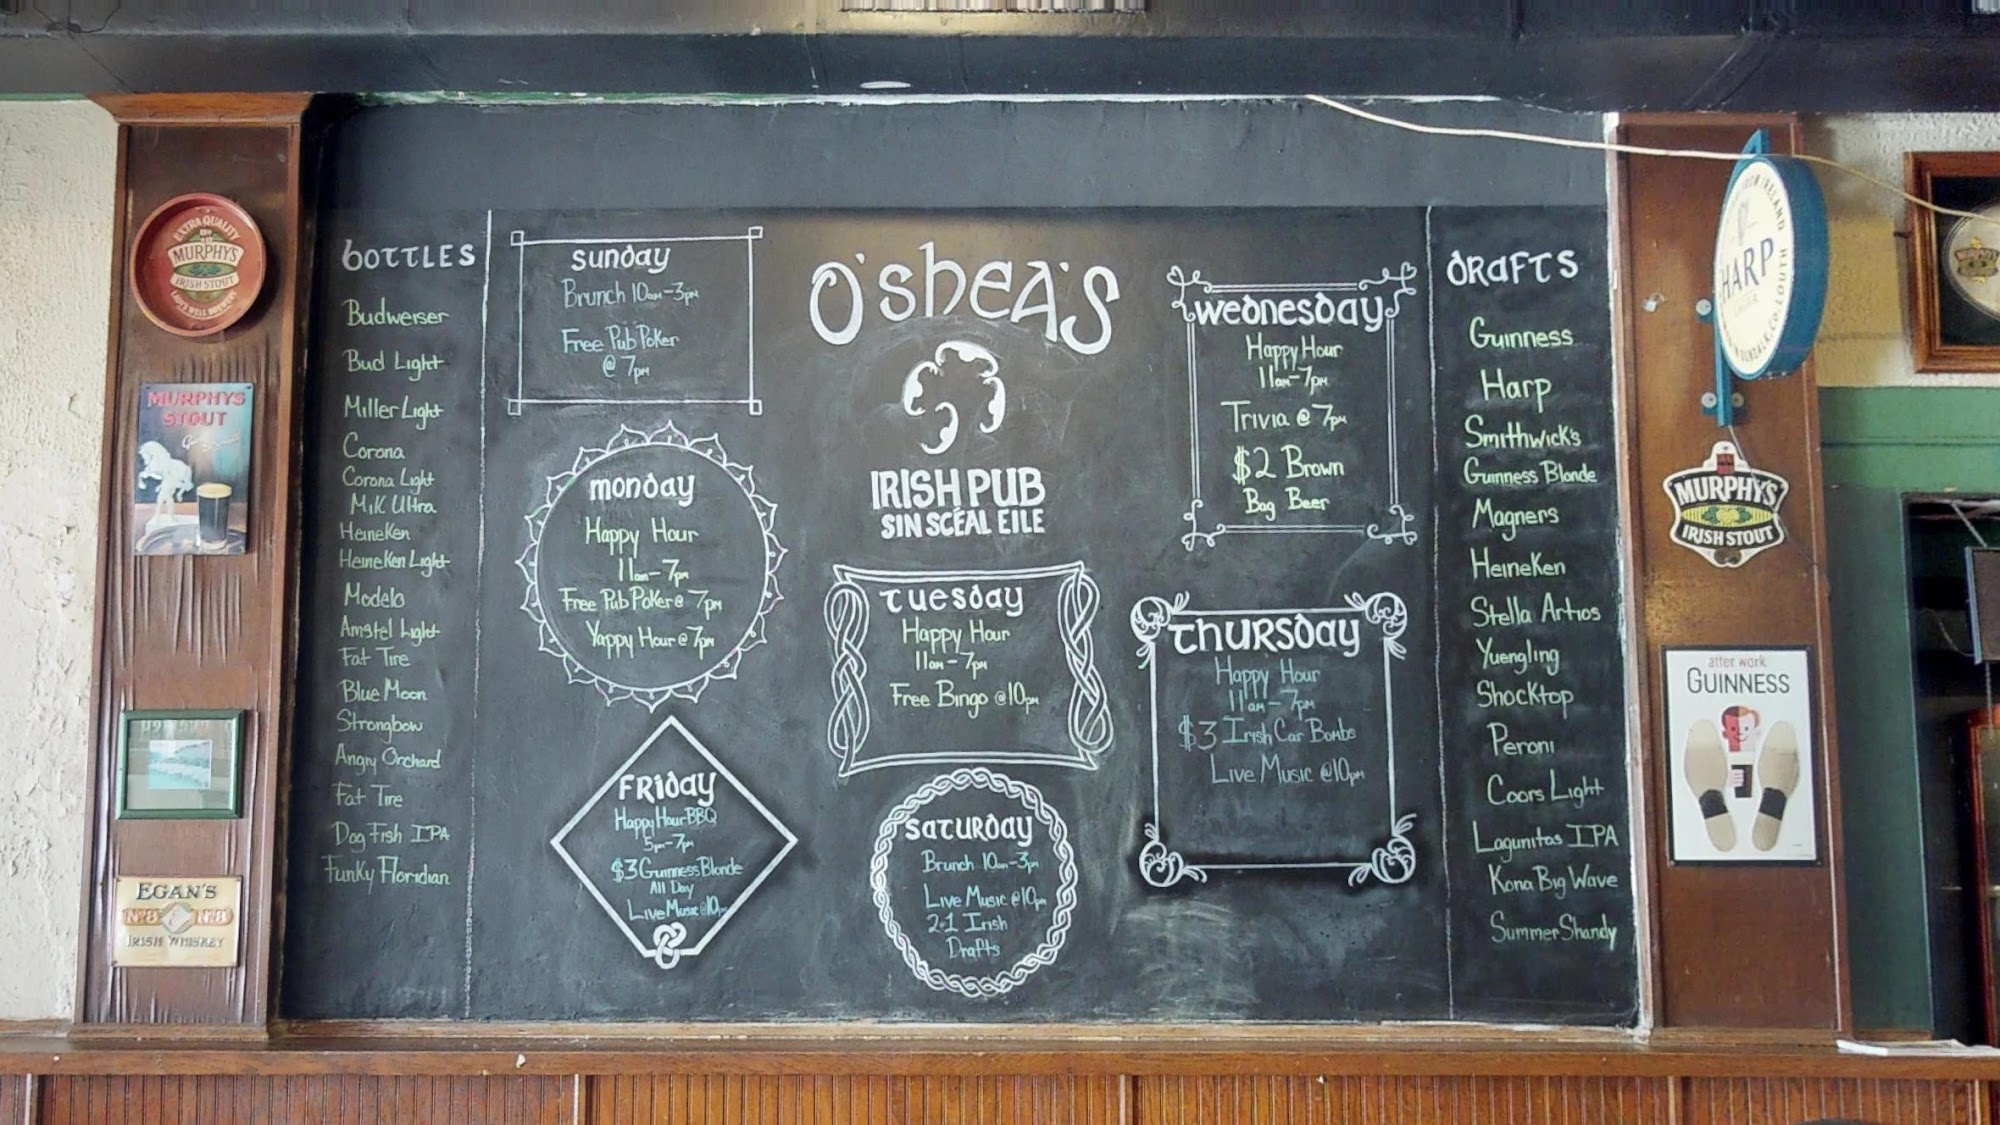 EXTRA QUALITY
MURPHY'S
IRISH STOUT
LADY'S WELL BREWERY
MURPHYS
STOUT
EGAN'S
No.8 No.8
IRISH WHISKEY
BOTTLES
Budweiser
Bud Light
Miller Light
Corona
Corona Light
MiK Ultra
Heineken
Heineken Light
Modelo
Amstel Light
Fat Tire
Blue Moon
Strongbow
Angry Orchard
Fat Tire
Dog Fish IPA
Funky Floridian
Sunday
Brunch 10am-3pm
Free Pub Poker
@ 7pm
Monday
Happy Hour
11am-7pm
Free Pub Poker @ 7pm
Yappy Hour @ 7pm
FRIDAY
Happy Hour BBQ
5pm-7pm
$3 Guinness Blonde
All Day
Live Music @10pm
O'SHEA'S
IRISH PUB
SIN SCÉAL EILE
TUESDAY
Happy Hour
11am-7pm
Free Bingo @10pm
SATURDAY
Brunch 10am-3pm
Live Music @10pm
2-1 Irish
Drafts
WEDNESDAY
Happy Hour
11am-7pm
Trivia @ 7pm
$2 Brown
Bag Beer
THURSDAY
Happy Hour
11am-7pm
$3 Irish Car Bombs
Live Music @10pm
DRAFTS
Guinness
Harp
Smithwick's
Guinness Blonde
Magners
Heineken
Stella Artios
Yuengling
Shocktop
Peroni
Coors Light
Lagunitas IPA
Kona Big Wave
Summer Shandy
HARP
LAGER
MURPHY'S
IRISH STOUT
after work
GUINNESS